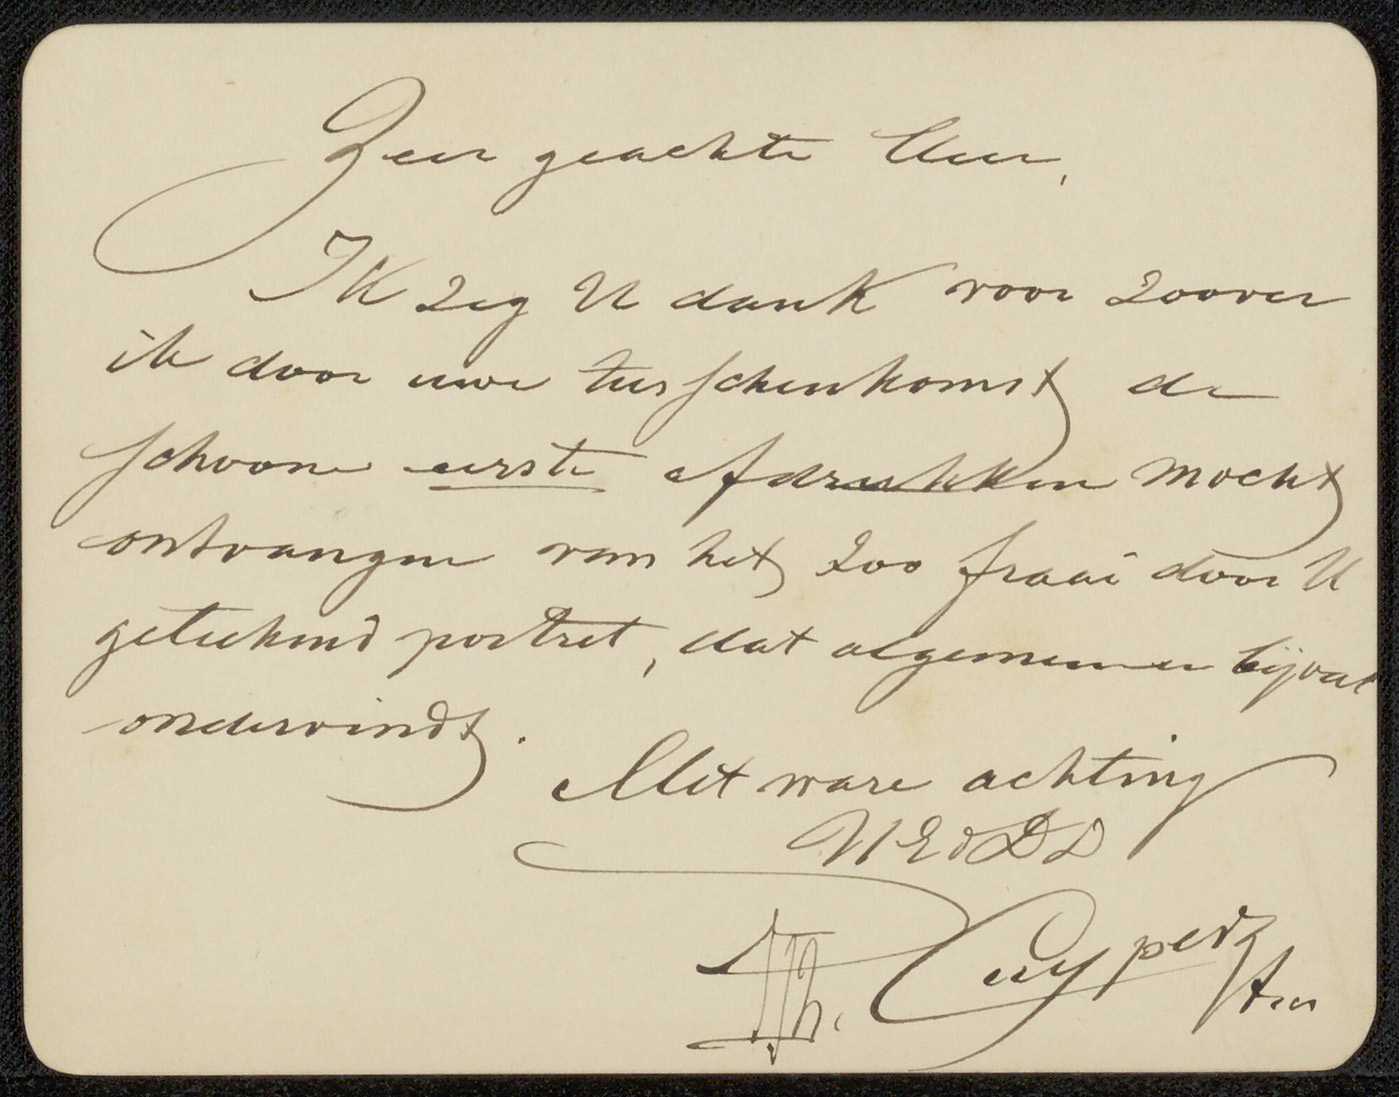 Zeer geachte Heer,
Ik zeg U dank voor zoover
ik door uwe tusschenkomst de
schoone eerste afdrukken mocht
ontvangen van het zoo fraai door U
geteekend portret, dat algemeenen bijval
ondervindt.
Met ware achting
UEdDD
Cuypers